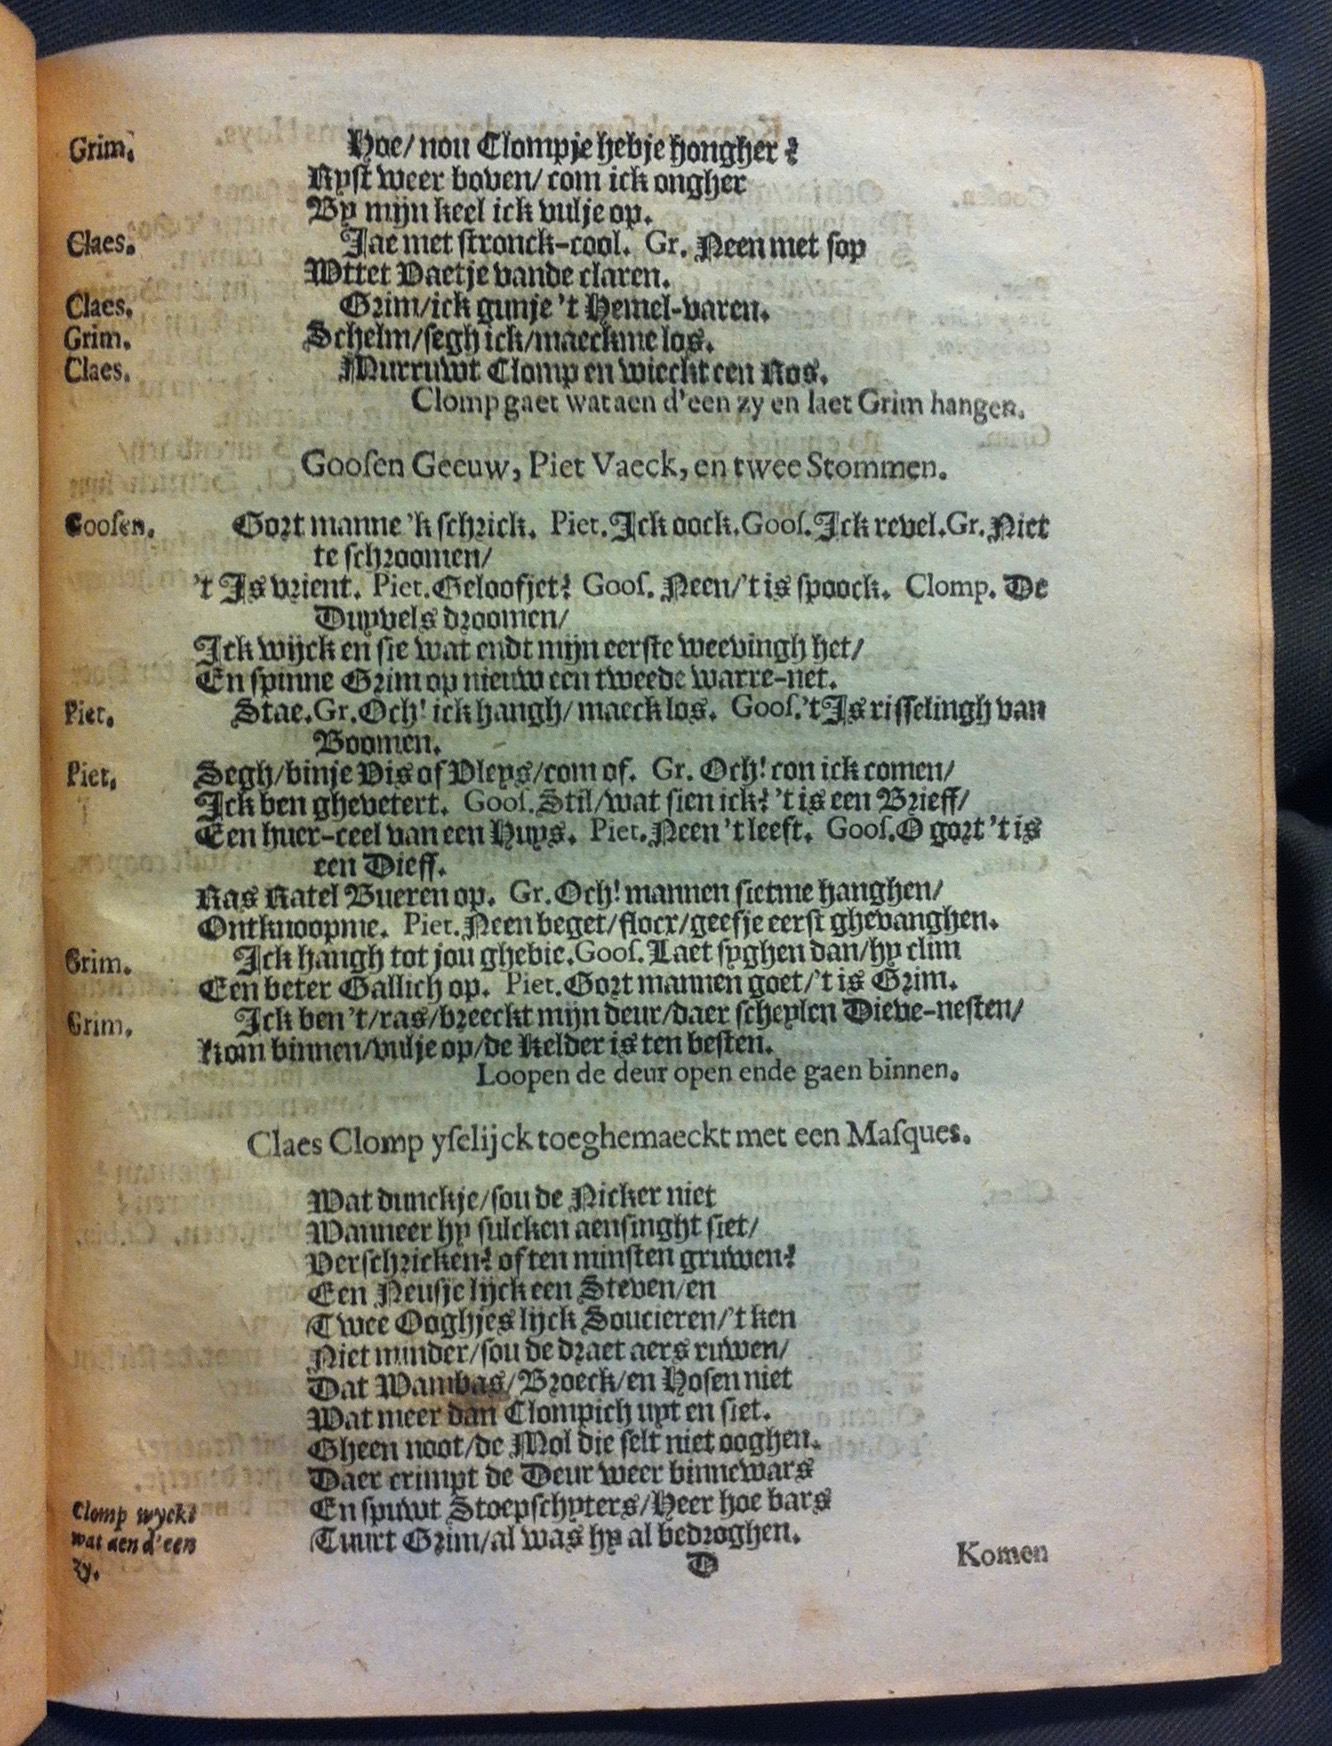 Grim. Hoe/ nou Clompje hebje hongher?
Ryst weer boven/ com ick ongher
By mijn keel ick vulje op.
Claes. Jae met stronck-cool. Gr. Neen met sop
Wttet Vaetje vande claren.
Claes. Grim/ick gunje 't Hemel-varen.
Grim. Schelm/segh ick/maeckme los.
Claes. Murruwt Clomp en wieckt een Ros.
Clomp gaet wat aen d'een zy en laet Grim hangen.
Goosen Geeuw, Piet Vaeck, en twee Stommen.
Goosen. Gort manne 'k schrick. Piet. Ick oock. Goos. Ick revel. Gr. Niet
te schroomen/
't Is vrient. Piet. Geloofjet? Goos. Neen/'t is spoock. Clomp. De
Duyvels droomen/
Ick wijck en sie wat endt mijn eerste weevingh het/
En spinne Grim op nieuw een tweede warre-net.
Piet. Stae. Gr. Och! ick hangh/ maeck los. Goos. 't Is risselingh van
Boomen.
Piet. Segh/binje Vis of Vleys/com of. Gr. Och! con ick comen/
Ick ben ghevetert. Goos. Stil/wat sien ick? 't is een Brieff/
Een huer-ceel van een Huys. Piet. Neen 't leeft. Goos. O gort 't is
een Dieff.
Ras Ratel Bueren op. Gr. Och! mannen sietme hanghen/
Ontknoopme. Piet. Neen beget/flocx/geefje eerst ghevanghen.
Grim. Ick hangh tot jou ghebie. Goos. Laet syghen dan/hy clim
Een beter Gallich op. Piet. Gort mannen goet/'t is Grim.
Grim. Ick ben 't/ras/breeckt mijn deur/daer scheylen Dieve-nesten/
Kom binnen/vulje op/de Kelder is ten besten.
Loopen de deur open ende gaen binnen.
Claes Clomp yselijck toeghemaeckt met een Masques.
Wat dunckje/sou de Nicker niet
Wanneer hy sulcken aensinght siet/
Verschricken? of ten minsten gruwen?
Een Neusje lijck een Steven/en
Twee Ooghjes lijck Soucieren/'t ken
Niet minder/sou de draet aers ruwen/
Dat Wambas/Broeck/en Hosen niet
Wat meer dan Clompich uyt en siet.
Gheen noot/de Mol die selt niet ooghen.
Daer crimpt de Deur weer binnewars
En spuwt Stoepschyters/Heer hoe bars
Tuurt Grim/al was hy al bedroghen.
Clomp wyckt
wat aen d'een
zy.
D
Komen